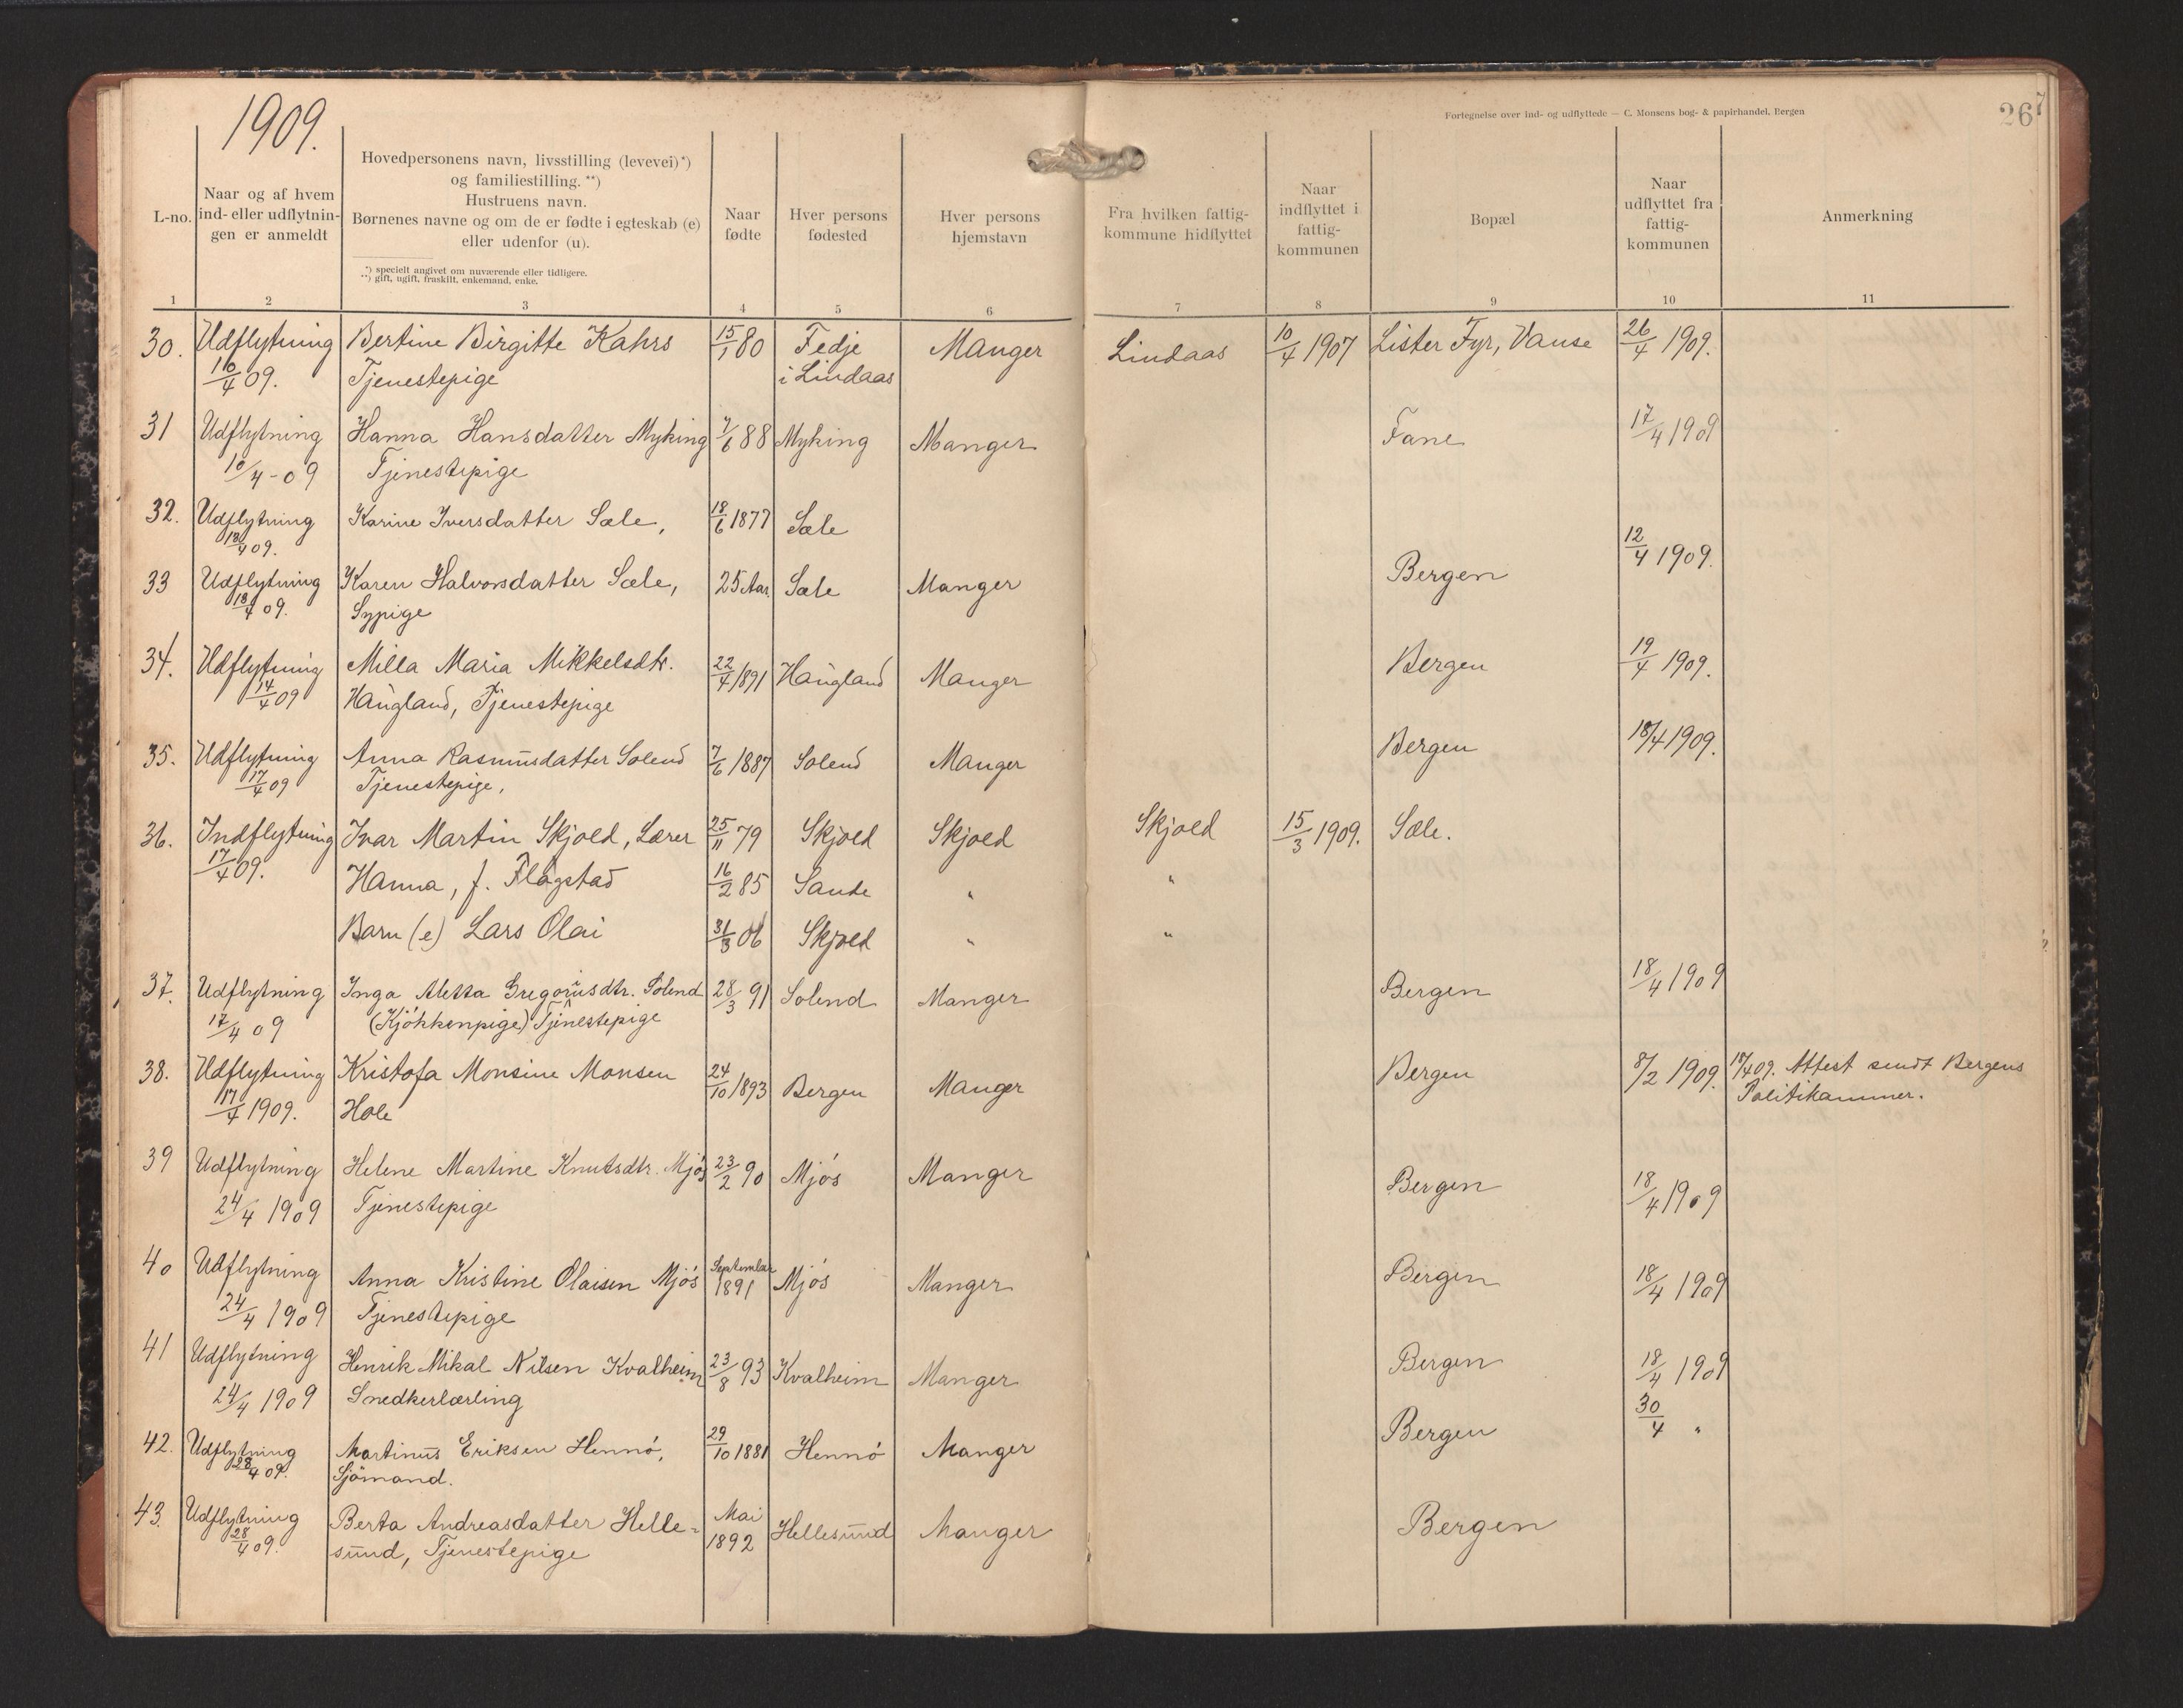 1909.
Fortegnelse over ind- og udflyttede — C. Monsens bog- & papirhandel, Bergen
26
L-no.
Naar og af hvem
ind- eller udflytnin-
gen er anmeldt
Hovedpersonens navn, livsstilling (levevei)*)
og familiestilling. **)
Hustruens navn.
Børnenes navne og om de er fødte i egteskab (e)
eller udenfor (u).
*) specielt angivet om nuværende eller tidligere.
**) gift, ugift, fraskilt, enkemand, enke.
Naar
fødte
Hver persons
fødested
Hver persons
hjemstavn
Fra hvilken fattig-
kommune hidflyttet
Naar
indflyttet i
fattig-
kommunen
Bopæl
Naar
udflyttet fra
fattig-
kommunen
Anmerkning
1 2 3 4 5 6 7 8 9 10 11
30. Udflytning Bertine Birgitte Kahrs 15/1 80 Fedje Manger Lindaas 10/4 1907 Lister Fyr, Vanse 26/4 1909.
16/4 09. Tjenestepige i Lindaas
31 Udflytning Hanna Hansdatter Myking 7/6 88 Myking Manger Fane 17/4 1909
10/4-09 Tjenestepige
32. Udflytning Karine Iversdatter Sæle, 18/6 1877 Sæle
13/4 09.
33 Udflytning Karen Halvorsdatter Sæle, 25 Aar. Sæle Manger Bergen 12/4 1909.
13/4 09. Sypige
34. Udflytning Milla Maria Mikkelsdtr. 22/4 1891 Haugland Manger Bergen 19/4 1909.
14/4 09 Haugland, Tjenestepige
35. Udflytning Anna Rasmusdatter Solend 7/6 1887 Solend Manger Bergen 18/4 1909.
17/4 09 Tjenestepige,
36. Indflytning Ivar Martin Skjold, Lærer 25/11 79 Skjold Skjold Skjold 15/3 1909. Sæle.
17/4 09.
Hanna, f. Flagstad 16/2 85 Sande " "
Barn (e) Lars Olai 31/3 06 Skjold " "
37. Udflytning Inga Aletta Gregoriusdtr. Solend 28/3 91 Solend Manger Bergen 18/4 1909
17/4 09 (Kjøkkenpige) Tjenestepige
38. Udflytning Kristofa Monsine Monsen 24/10 1893 Bergen Manger Bergen 8/2 1909. 17/4 09. Attest sendt Bergens
17/4 1909. Hole Politikammer.
39 Udflytning Helene Martine Knutsdtr. Mjøs 23/2 90 Mjøs Manger Bergen 18/4 1909
24/4 1909 Tjenestepige
40 Udflytning Anna Kristine Olaisen Mjøs September 1891 Mjøs Manger Bergen 18/4 1909
24/4 1909 Tjenestepige
41 Udflytning Henrik Mikal Nilsen Kvalheim 23/8 93 Kvalheim Manger Bergen 18/4 1909
24/4 1909 Snedkerlærling
42. Udflytning Martinus Eriksen Hennø, 29/10 1881 Hennø Manger Bergen 30/4 "
28/4 09. Sjömand.
43. Udflytning Berta Andreasdatter Helle- Mai 1892 Hellesund Manger Bergen
28/4 09. sund, Tjenestepige